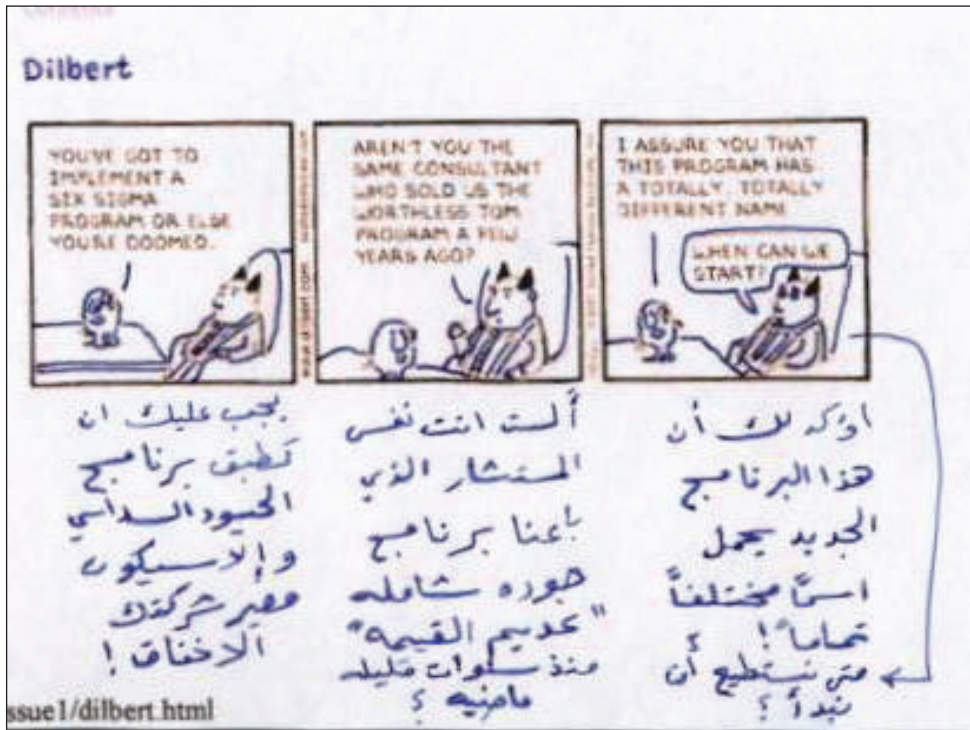 Dilbert
YOU'VE GOT TO
IMPLEMENT A
SIX SIGMA
PROGRAM OR ELSE
YOU'RE DOOMED.
AREN'T YOU THE
SAME CONSULTANT
WHO SOLD US THE
WORTHLESS TQM
PROGRAM A FEW
YEARS AGO?
I ASSURE YOU THAT
THIS PROGRAM HAS
A TOTALLY, TOTALLY
DIFFERENT NAME
WHEN CAN WE
START?
www.dilbert.com
يجب عليك ان
تطبق برنامج
الحيود السداسي
وإلا سيكون
مصير شركتك
الاخفاق !
ألست انت نفس
المستشار الذي
باعنا برنامج
جوده شامله
"عديم القيمه"
منذ سنوات قليله
ماضيه ؟
اؤكد لك أن
هذا البرنامج
الجديد يحمل
اسمًا مختلفاً
تماما" !
متى نستطيع أن
نبدأ ؟
ssue1/dilbert.html